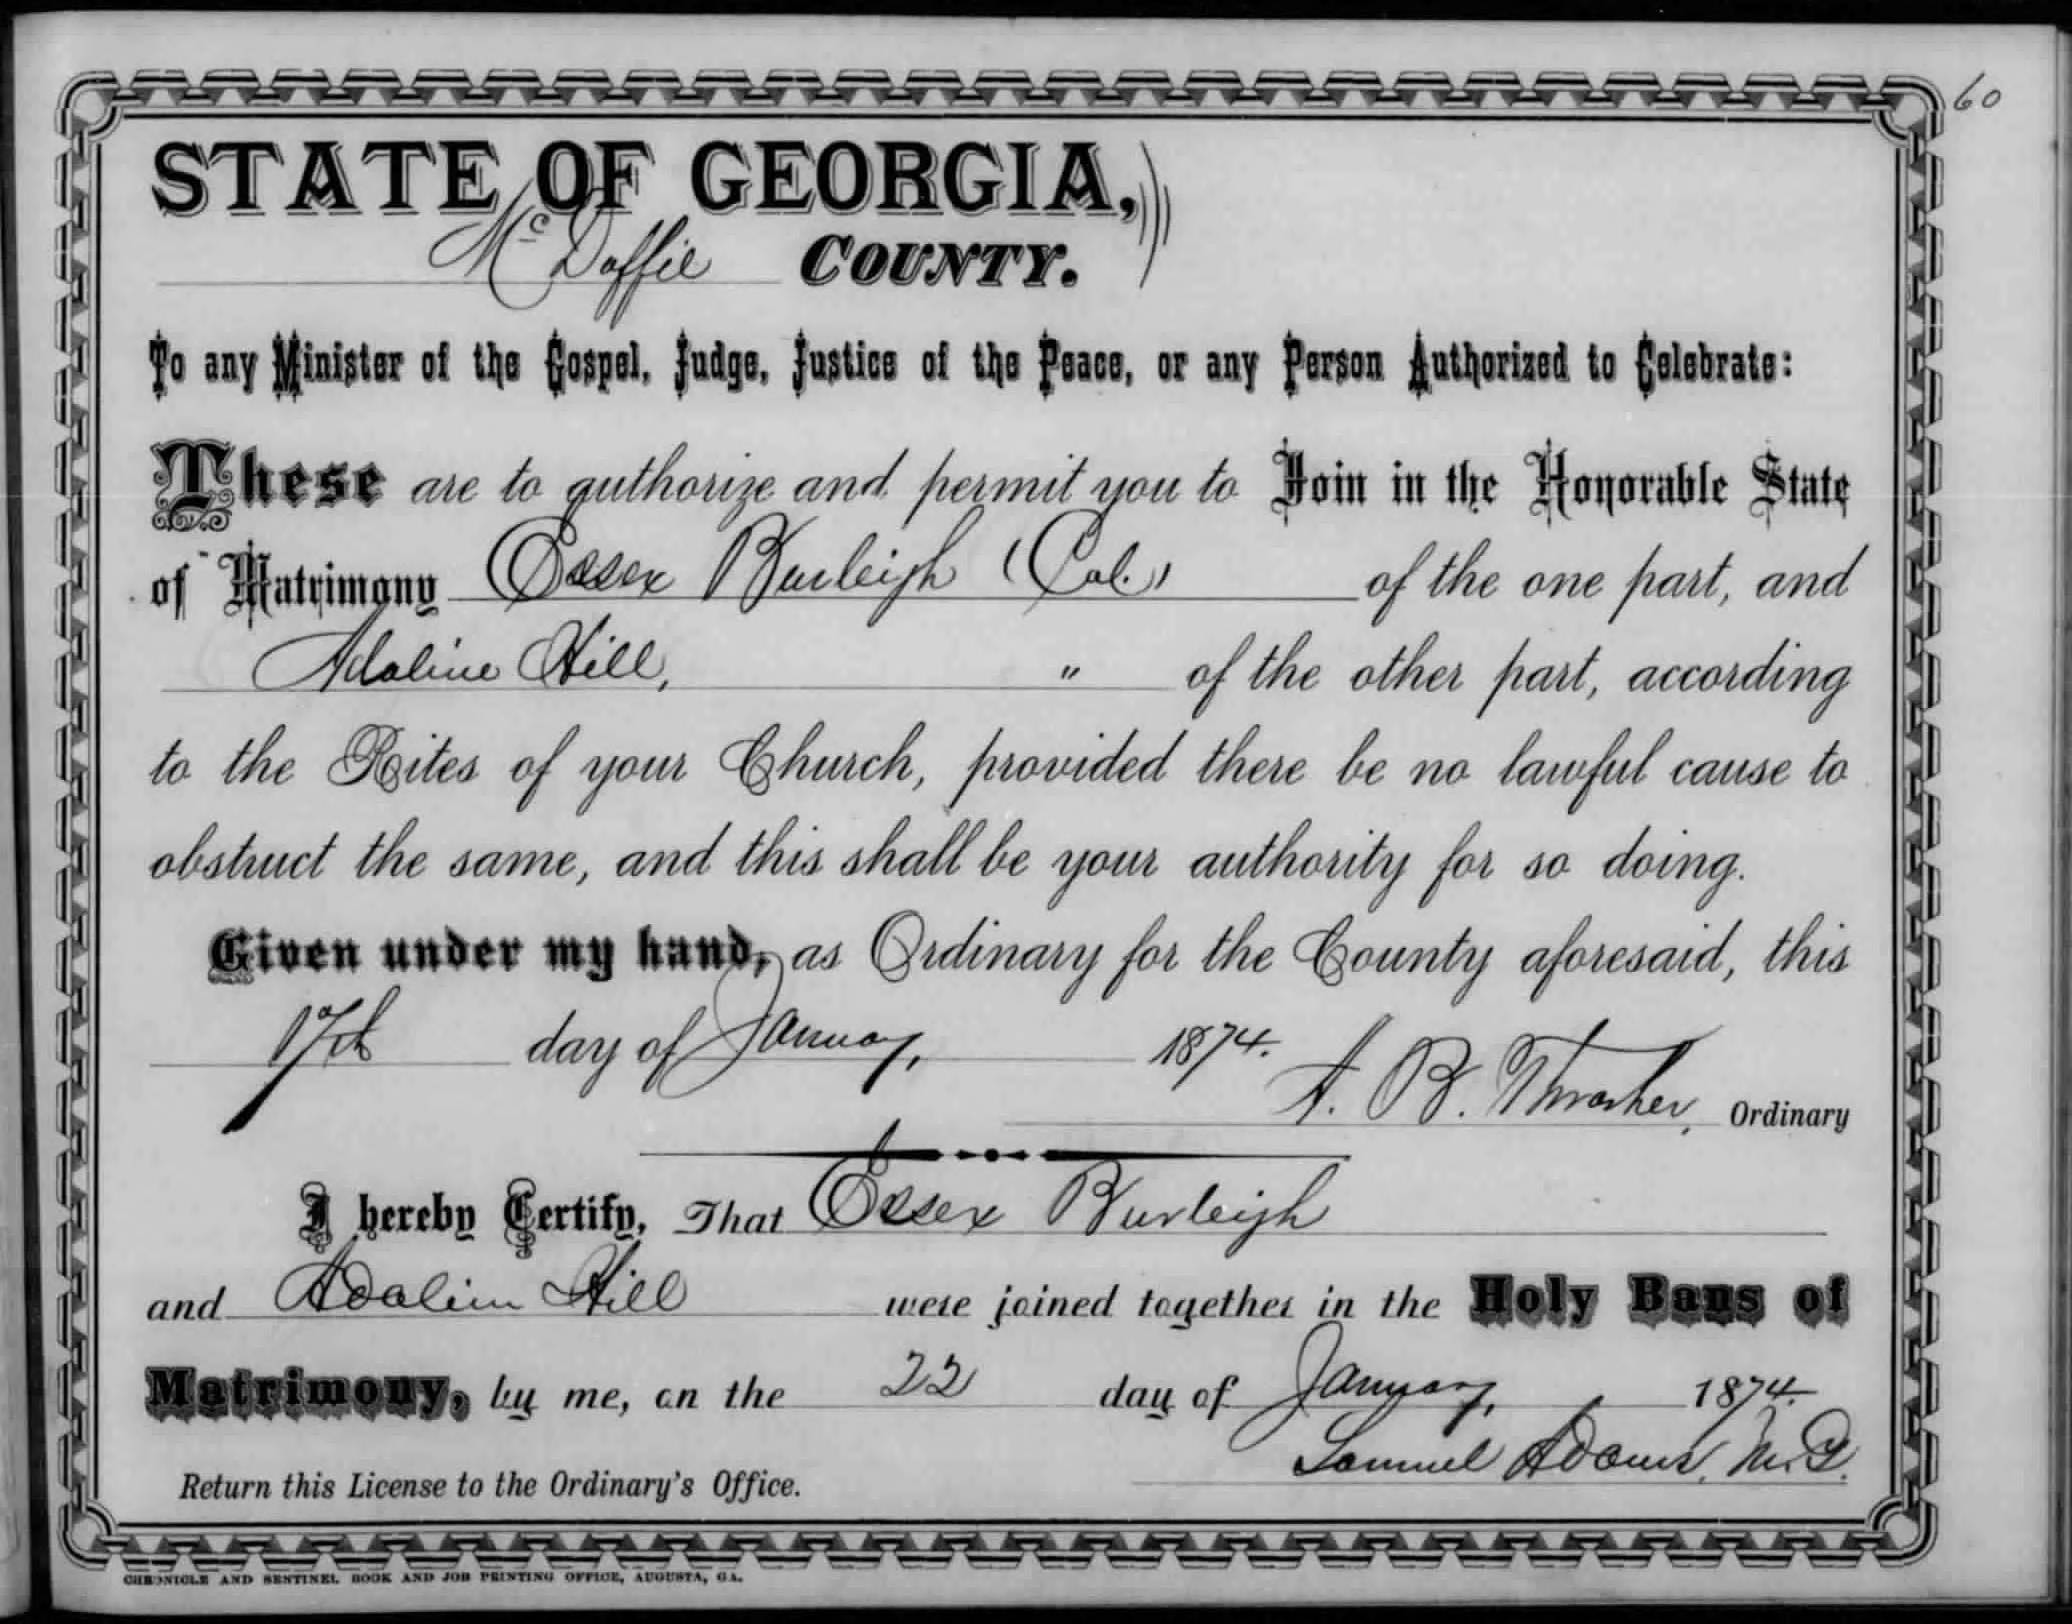 60
STATE OF GEORGIA,
McDuffie COUNTY.
To any Minister of the Gospel, Judge, Justice of the Peace, or any Person Authorized to Celebrate:
These are to authorize and permit you to Join in the Honorable State
of Matrimony Essex Burleigh (Col.) of the one part, and
Adaline Hill, " of the other part, according
to the Rites of your Church, provided there be no lawful cause to
obstruct the same, and this shall be your authority for so doing.
Given under my hand, as Ordinary for the County aforesaid, this
17th day of January, 1874.
A. B. Thrasher, Ordinary
I hereby Certify, That Essex Burleigh
and Adalin Hill were joined together in the Holy Bans of
Matrimony, by me, on the 22 day of January, 1874.
Samuel Adams, M.G.
Return this License to the Ordinary's Office.
CHRONICLE AND SENTINEL BOOK AND JOB PRINTING OFFICE, AUGUSTA, GA.